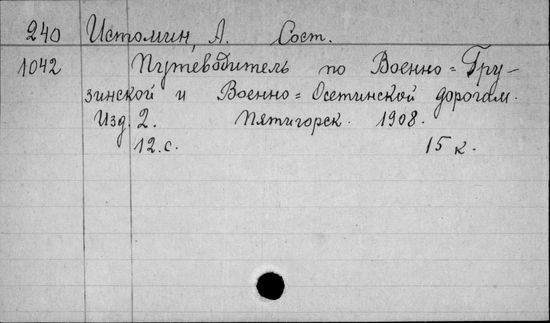 240 Истомин, А. Сост.
1042 Путеводитель по Военно=Гру-
зинской и Военно=Осетинской дорогам.
Изд. 2. Пятигорск. 1908.
12.с. 15 к.